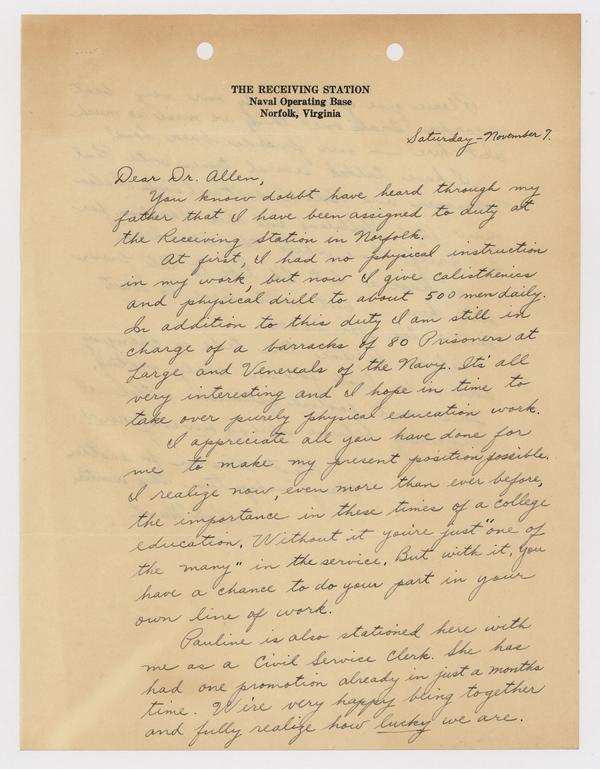 THE RECEIVING STATION
Naval Operating Base
Norfolk, Virginia
Saturday-November 7.
Dear Dr. Allen,
You know doubt have heard through my
father that I have been assigned to duty at
the Receiving Station in Norfolk.
At first, I had no physical instruction
in my work, but now I give calisthenics
and physical drill to about 500 men daily.
In addition to this duty I am still in
charge of a barracks of 80 Prisoners at
Large and Venereals of the Navy. Its' all
very interesting and I hope in time to
take over purely physical education work.
I appreciate all you have done for
me to make my present position possible.
I realize now, even more than ever before,
the importance in these times of a college
education. Without it you're just "one of
the many" in the service. But with it, you
have a chance to do your part in your
own line of work.
Pauline is also stationed here with
me as a Civil Service Clerk. She has
had one promotion already in just a months
time. We're very happy being together
and fully realize how lucky we are.